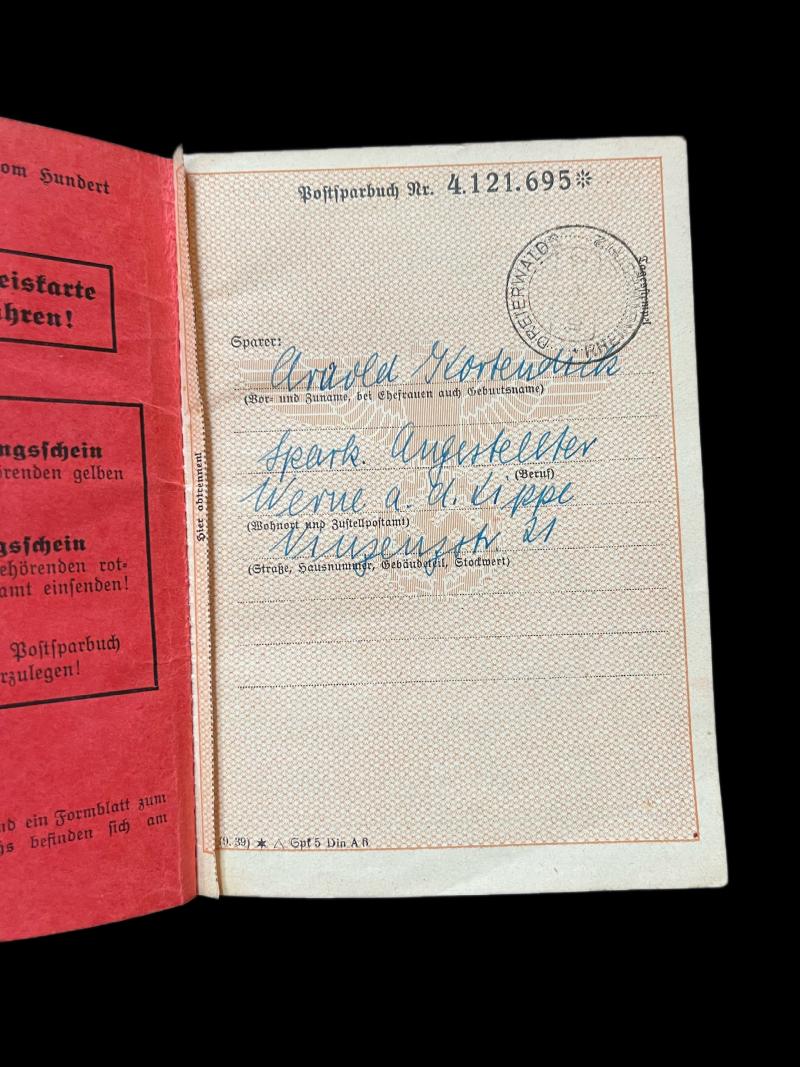 om Hundert
eiskarte
ahren!
ngsschein
örenden gelben
gsschein
ehörenden rot=
amt einsenden!
Postsparbuch
rzulegen!
nd ein Formblatt zum
hs befinden sich am
Hier abtrennen!
Postsparbuch Nr. 4.121.695*
DREIERWALDE
RHEINE
Tagesstempel
Sparer:
Arnold Kortendick
(Vor- und Zuname, bei Ehefrauen auch Geburtsname)
Spark. Angestellter
, (Beruf)
Werne a. d. Lippe
(Wohnort und Zustellpostamt)
Vinzenzstr. 21
(Straße, Hausnummer, Gebäudeteil, Stockwert)
(9. 39) Spf 5 Din A 6